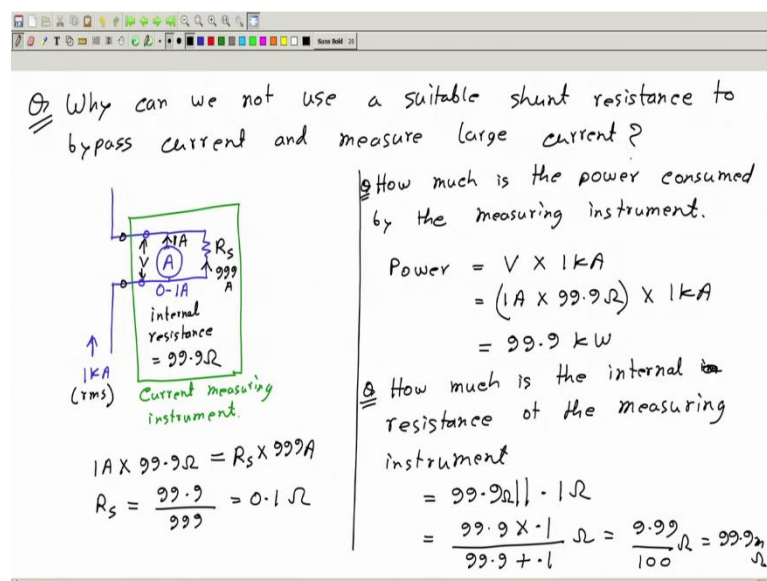 Sans Bold 20
Q Why can we not use a suitable shunt resistance to
bypass current and measure large current?
1A
V
A
Rs
999
A
0-1A
internal
resistance
= 99.9Ω
1KA
(rms)
Current measuring
instrument.
1A X 99.9Ω = Rs X 999A
Rs = 99.9 / 999 = 0.1 Ω
Q How much is the power consumed
by the measuring instrument.
Power = V X 1KA
= (1A X 99.9Ω) X 1KA
= 99.9 kW
Q How much is the internal
resistance of the measuring
instrument
= 99.9Ω || .1Ω
= 99.9 X .1 / 99.9 + .1 Ω = 9.99 / 100 Ω = 99.9m
Ω